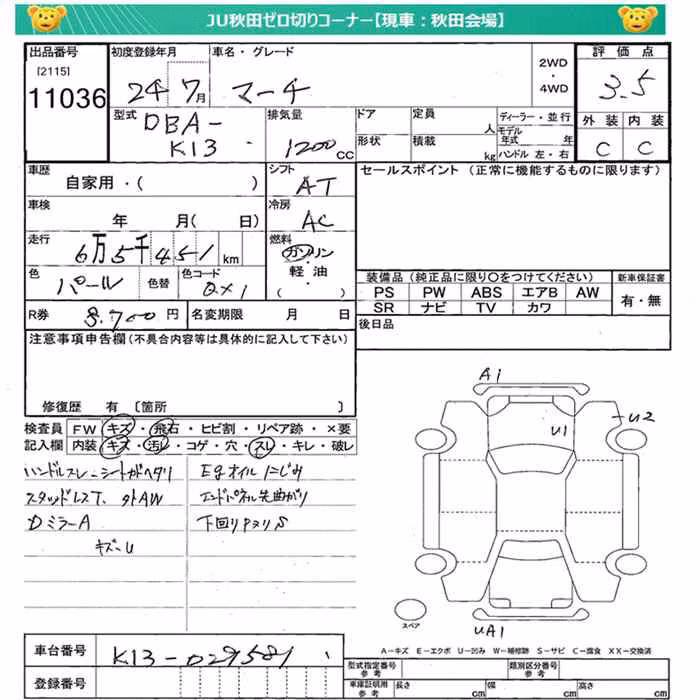 JU秋田ゼロ切りコーナー【現車：秋田会場】
出品番号 初度登録年月 車名・グレード 2WD・4WD 評価点
[2115]
11036 24年7月 マーチ 3.5
型式 排気量 ドア 定員 人 ディーラー・並行 外装 内装
DBA-K13 1200cc 形状 積載 kg モデル年式 年 ハンドル 左・右 C C
車歴 シフト セールスポイント（正常に機能するものに限ります）
自家用・（ ） AT
車検 冷房
年 月（ 日） AC
走行 燃料
6万5千451km ガソリン
色 色替 色コード 軽油
パール QX1 ・（ ）
装備品（純正品に限り〇をつけてください） 新車保証書
PS PW ABS エアB AW 有・無
SR ナビ TV カワ
R券 8,700円 名変期限 月 日 後日品
注意事項申告欄（不具合内容等は具体的に記入して下さい）
修復歴 有 〔箇所 〕
検査員 FW キズ・飛石・ヒビ割・リペア跡・×要
記入欄 内装 キズ・汚レ・コゲ・穴・スレ・キレ・破レ
ハンドルスレ シートガヘタリ Egオイルにじみ
スタッドレスT. 外AW エンドパネル先曲がり
DミラーA 下回りPヌリS
キズU
A1
U1
U2
UA1
スペア
A－キズ E－エクボ U－凹み W－補修跡 S－サビ C－腐食 XX－交換済
車台番号 K13-029581
登録番号
型式指定番号 参考 類別区分番号 参考
車庫証明用 参考 長さ cm 幅 cm 高さ cm